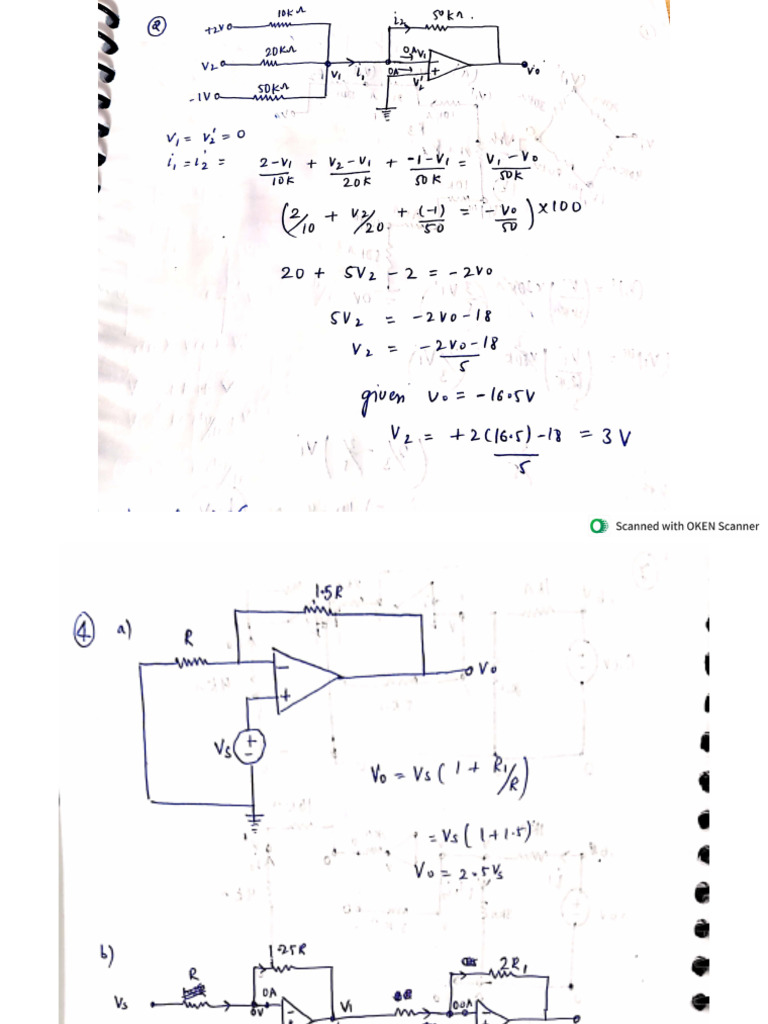 ②
10KΩ
50KΩ
+2V
i₂
20KΩ
0A V₁
V₂
V₁
i₁
0A
V₂'
V₀
50KΩ
-1V
V₁ = V₂' = 0
i₁ = i₂ = 2-V₁/10K + V₂-V₁/20K + -1-V₁/50K = V₁-V₀/50K
(2/10 + V₂/20 + (-1)/50 = -V₀/50) × 100
20 + 5V₂ - 2 = -2V₀
5V₂ = -2V₀ - 18
V₂ = -2V₀-18/5
given V₀ = -16.5V
V₂ = +2(16.5)-18/5 = 3V
Scanned with OKEN Scanner
④ a)
1.5R
R
V₀
Vs
V₀ = Vs(1 + R₁/R)
= Vs(1+1.5)
V₀ = 2.5Vs
b)
1.25R
2R₁
R
0A
00A
Vs
0V
V₁